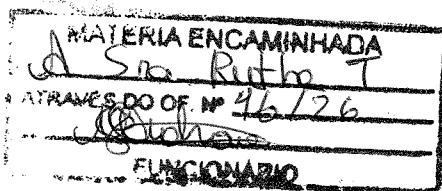 MATERIA ENCAMINHADA
A Sra Rutho T
ATRAVES DO OF. Nº 46/26
FUNCIONARIO